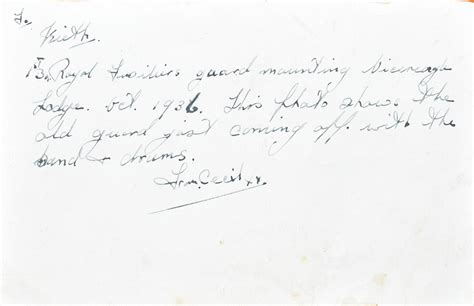 To
Keith.
1st Bn Royal Fusiliers guard mounting Viceregal
Lodge. Oct. 1936. This photo shows the
old guard just coming off with the
band & drums.
From Cecil xx.